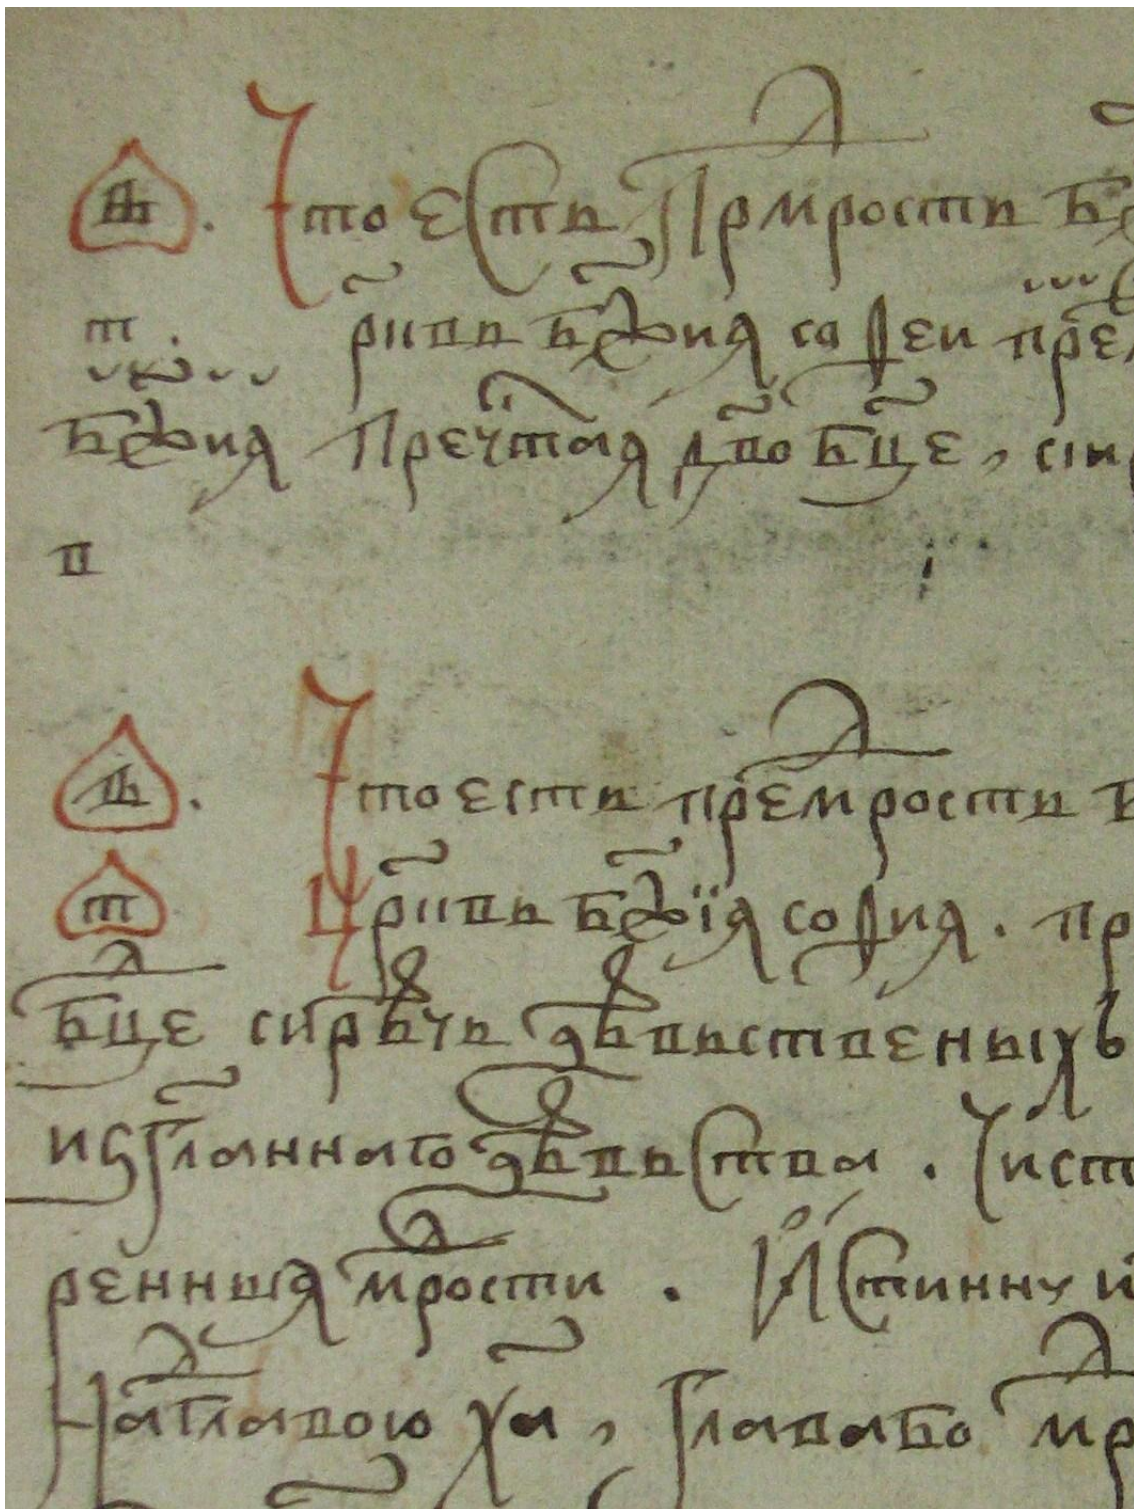 в҃. Что есть Прмⷣрость Бж
т. рк҃вь Бж҃ия софеи пре
Бж҃ия Преч҃тая дв҃о Бц҃е, си
в
в҃. Что есть премⷣрость Б
т Цр҃квь Бж҃їя софия. пр
Бц҃е сирѣчь дѣвьственыхъ
изгл҃аннаго дѣвьства. Чист
ренныя мⷣрости. И҆стинну и
Надглавою Х҃а, главабо мⷣр